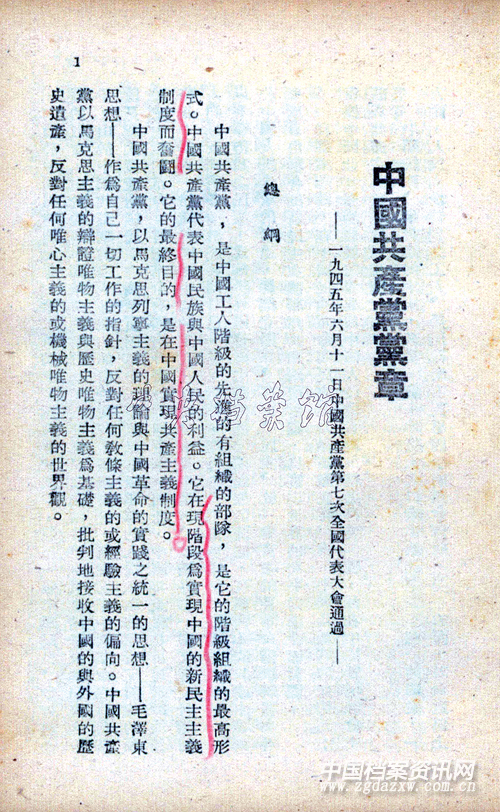 中國共產黨黨章
——一九四五年六月十一日中國共產黨第七次全國代表大會通過——
總綱
中國共產黨，是中國工人階級的先進的有組織的部隊，是它的階級組織的最高形
式。中國共產黨代表中國民族與中國人民的利益。它在現階段爲實現中國的新民主主義
制度而奮鬪。它的最終目的，是在中國實現共產主義制度。
中國共產黨，以馬克思列寧主義的理論與中國革命的實踐之統一的思想——毛澤東
思想——作爲自己一切工作的指針，反對任何教條主義的或經驗主義的偏向。中國共產
黨以馬克思主義的辯證唯物主義與歷史唯物主義爲基礎，批判地接收中國的與外國的歷
史遺產，反對任何唯心主義的或機械唯物主義的世界觀。
1
中国档案资讯网
www.zgdazxw.com.cn